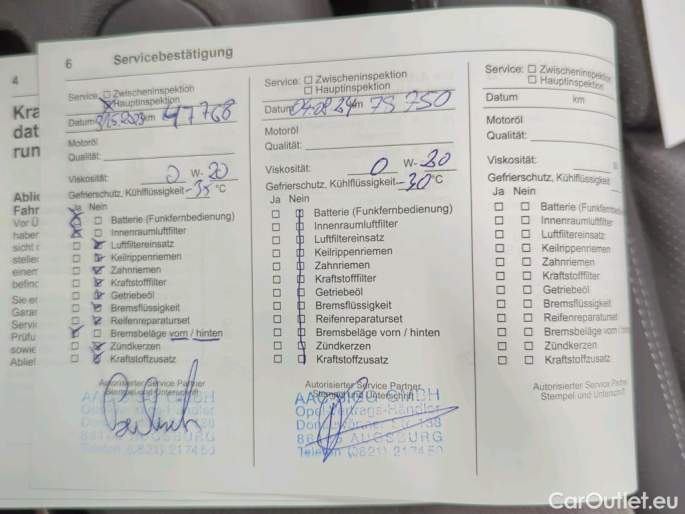 4
Kra
dat
run
Ablie
Fahr
Vor Ü
haber
sicht
stellen
einem
befind
Sie er
Garan
Servi
Prüfu
sowie
Ablief
6 Servicebestätigung
Service: Zwischeninspektion
Hauptinspektion
Datum km 47768
Motoröl
Qualität:
Viskosität: 0 W- 20
Gefrierschutz, Kühlflüssigkeit -35 °C
Ja Nein
Batterie (Funkfernbedienung)
Innenraumluftfilter
Luftfiltereinsatz
Keilrippenriemen
Zahnriemen
Kraftstofffilter
Getriebeöl
Bremsflüssigkeit
Reifenreparaturset
Bremsbeläge vorn / hinten
Zündkerzen
Kraftstoffzusatz
Autorisierter Service Partner
Stempel und Unterschrift
Augsburg
Telefon (0821) 217450
Service: Zwischeninspektion
Hauptinspektion
Datum 04.08.24 km 79750
Motoröl
Qualität:
Viskosität: 0 W- 20
Gefrierschutz, Kühlflüssigkeit -30 °C
Ja Nein
Batterie (Funkfernbedienung)
Innenraumluftfilter
Luftfiltereinsatz
Keilrippenriemen
Zahnriemen
Kraftstofffilter
Getriebeöl
Bremsflüssigkeit
Reifenreparaturset
Bremsbeläge vorn / hinten
Zündkerzen
Kraftstoffzusatz
Autorisierter Service Partner
Stempel und Unterschrift
GMBH
Opel-Vertrags-Händler
Str. 138
AUGSBURG
Telefon (0821) 217450
Service: Zwischeninspektion
Hauptinspektion
Datum km
Motoröl
Qualität:
Viskosität:
Gefrierschutz, Kühlflüssigkeit
Ja Nein
Batterie (Funkfernbedienu
Innenraumluftfilter
Luftfiltereinsatz
Keilrippenriemen
Zahnriemen
Kraftstofffilter
Getriebeöl
Bremsflüssigkeit
Reifenreparaturset
Bremsbeläge vorn /
Zündkerzen
Kraftstoffzusatz
Autorisierter Service Partne
Stempel und Unterschrift
CarOutlet.eu